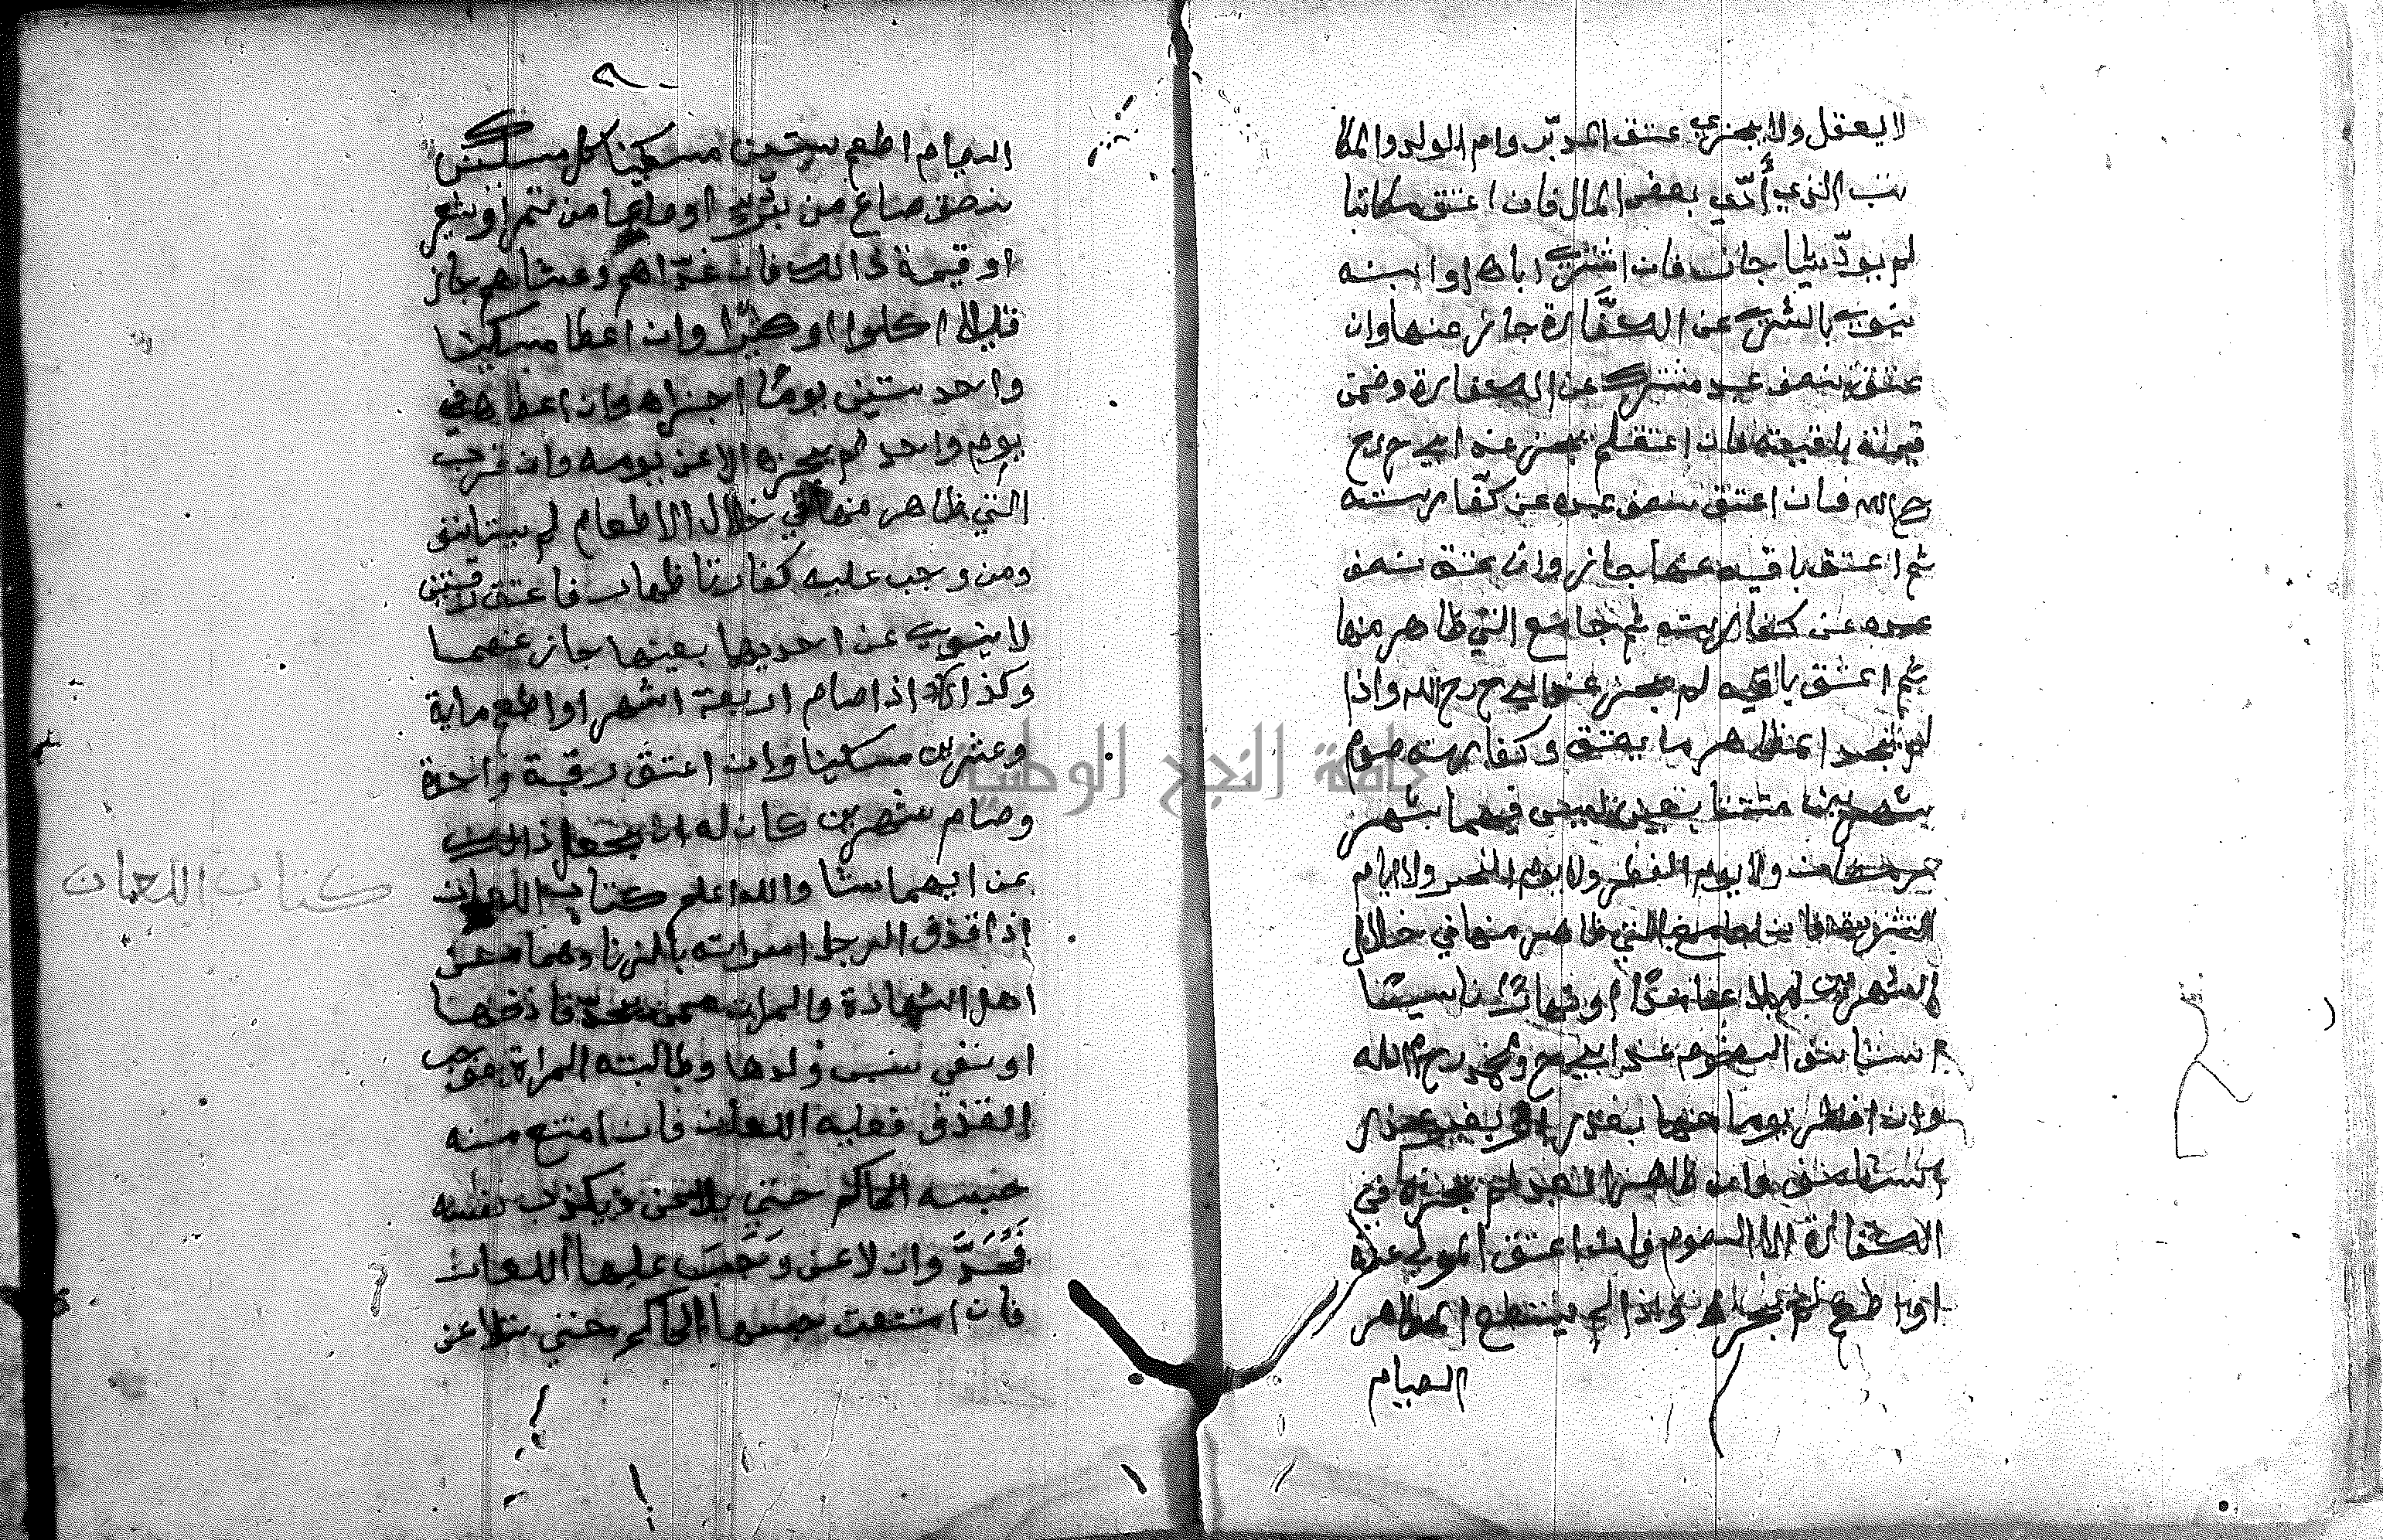 لا يعقل ولا يجزي عتق المدبر وام الولد والمكا
تب الذي أدّي بعض المال فان اعتق مكاتبا
لم يودّ شيا جاز فان اشتري اباه او ابنه
ينوي بالشري عن الكفّارة جاز عنها وان
عتق نصف عبد مشترك عن الكفارة وضمن
قيمة باقيه فان اعتقه لم يجز عند ابي ح رح
رح الله فان اعتق نصف عبده عن كفّارته
ثم اعتق باقيه عنها جاز وان عتق نصف
عبده عن كفارته ثم جامع التي ظاهر منها
ثم اعتق باقيه لم يجز عند ابي ح رح الله واذا
لم يجد المظاهر ما يعتق وكفارته صوم
شهرين متتابعين ليس فيهما شهر
رمضان ولا يوم الفطر ولا يوم النحر ولا ايام
التشريق فان جامع التي ظاهر منها في خلال
الشهرين ليلا عامدًا او نهارًا ناسيًا
استانف الصوم عند ابي ح ومحمد رحم الله
وان افطر يوما منها بعذر او بغير عذر
استانف وان ظاهر العبد لم يجزه في
الكفارة الا الصوم فان اعتق المولي عنه
او اطعم لم يجزه واذا لم يستطع المظاهر
الصيام
الصيام اطعم ستين مسكينا كل مسكين
نصف صاع من برّ او صاعا من تمر او شعير
او قيمة ذالك فان غدّاهم وعشاهم جاز
قليلا اكلوا او كثيرا وان اعطا مسكينا
واحد ستين يومًا اجزاه وان اعطاه في
يوم واحد لم يجزه الا عن يومه وان قرب
التي ظاهر منها في خلال الاطعام لم يستانف
ومن وجب عليه كفارتا ظهار فاعتق رقبتين
لا ينوي عن احديها بعينها جاز عنهما
وكذالك اذا صام اربعة اشهر او اطعم ماية
وعشرين مسكينا وان اعتق رقبة واحدة
وصام شهرين كان له ان يجعل ذالك
عن ايهما شا والله اعلم كتاب اللعان
كتاب اللعان
اذا قذف الرجل امراته بالزنا وهما من
اهل الشهادة والمراة ممن يحدّ قاذفها
او نفي نسب ولدها وطالبته المراة بموجب
القذف فعليه اللعان فان امتنع منه
حبسه الحاكم حتي يلاعن او يكذب نفسه
فَيُحَدَّ وان لاعن وَجَبَ عليها اللعان
فان امتنعت حبسها الحاكم حتي تلاعن
جامعة النجاح الوطنية